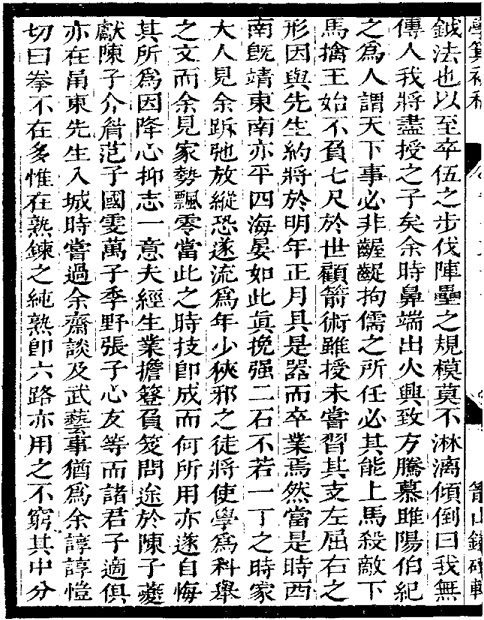 鉞法也以至卒伍之步伐陣壘之規模莫不淋漓傾倒曰我無
傳人我將盡授之子矣余時鼻端出火興致方騰慕睢陽伯紀
之為人謂天下事必非齷齪拘儒之所任必其能上馬殺敵下
馬擒王始不負七尺於世顧箭術雖授未嘗習其支左屈右之
形因與先生約將於明年正月具是器而卒業焉然當是時西
南旣靖東南亦平四海晏如此眞挽强二石不若一丁之時家
大人見余跅弛放縱恐遂流為年少狹邪之徒將使學為科舉
之文而余見家勢飄零當此之時技即成而何所用亦遂自悔
其所為因降心抑志一意夫經生業擔簦負笈問途於陳子夔
獻陳子介眉范子國雯萬子季野張子心友等而諸君子適俱
亦在甬東先生入城時嘗過余齋談及武藝事猶為余諄諄愷
切曰拳不在多惟在熟鍊之純熟即六路亦用之不窮其中分